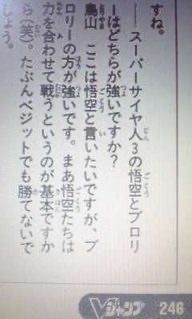 すね。
――スーパーサイヤ人3の悟空とブロリ
ーはどちらが強いですか?
鳥山 ここは悟空と言いたいですが、ブ
ロリーの方が強いです。まあ悟空たちは
力を合わせて戦うというのが基本ですか
ら(笑)。たぶんベジットでも勝てないで
しょう。
Vジャンプ 246